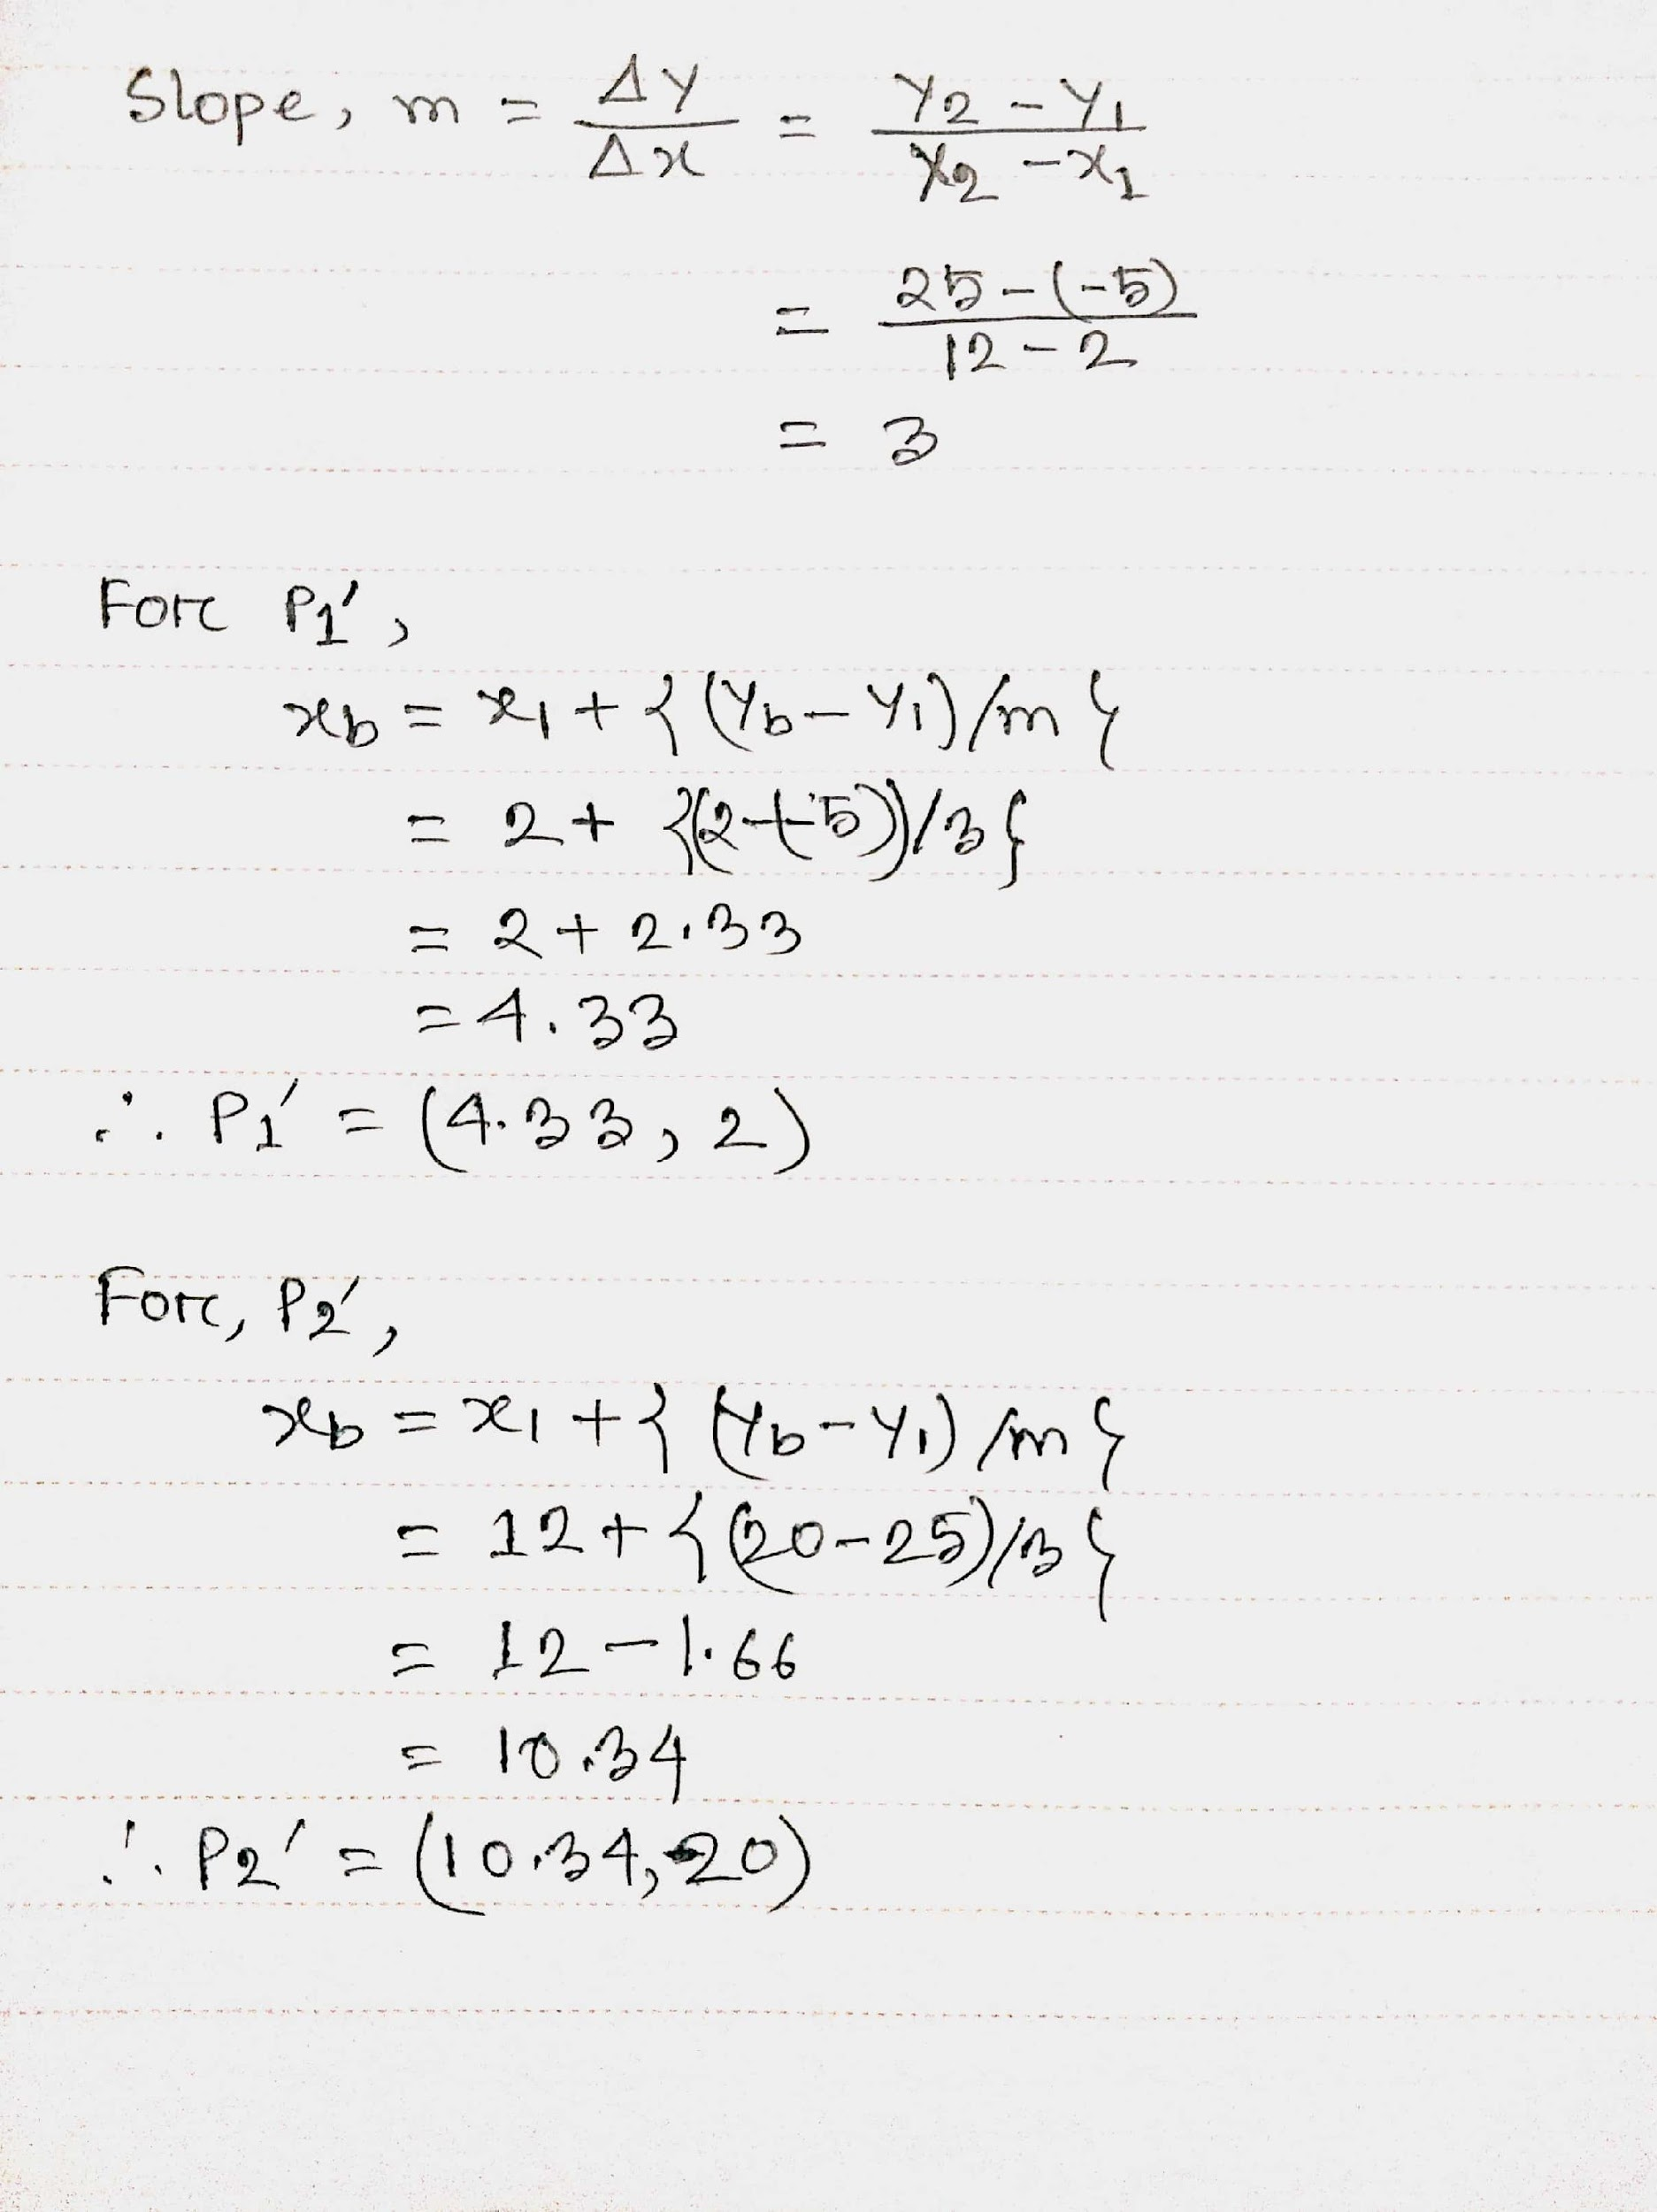 Slope, m = Δy/Δx = y₂ - y₁/x₂ - x₁
= 25-(-5)/12-2
= 3
Forc P₁',
x_b = x₁ + {(y_b - y₁)/m}
= 2 + {(2+5))/3}
= 2 + 2.33
= 4.33
∴ P₁' = (4.33, 2)
Forc, P₂',
x_b = x₁ + {(y_b - y₁)/m}
= 12 + {(20-25)/3}
= 12 - 1.66
= 10.34
∴ P₂' = (10.34, 20)